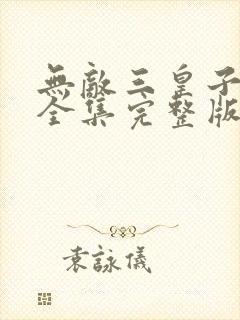 無敵三皇子
全集完整版
袁詠儀